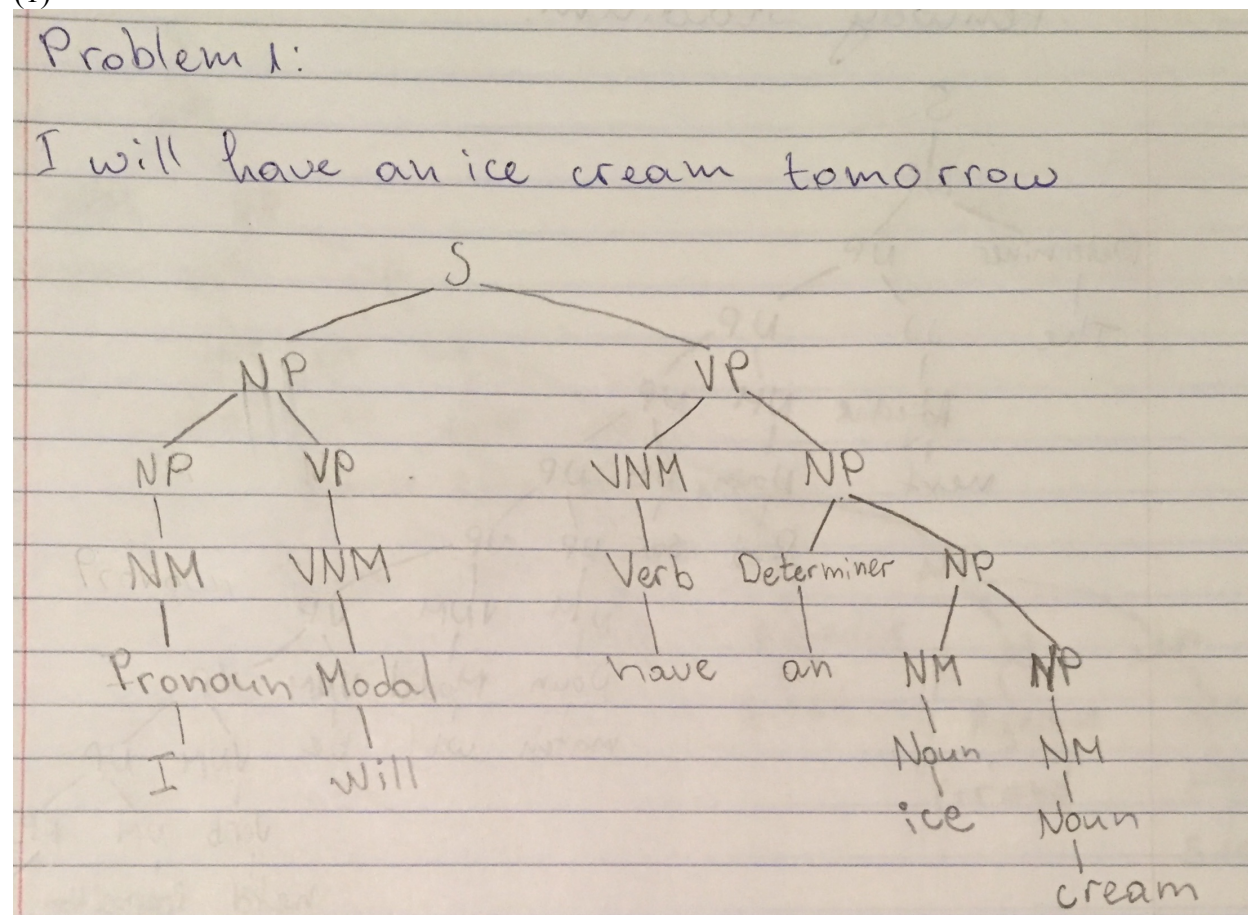 (1)
Problem 1:
I will have an ice cream tomorrow
S
NP VP
NP VP VNM NP
NM VNM Verb Determiner NP
Pronoun Modal have an NM NP
I will Noun NM
ice Noun
cream